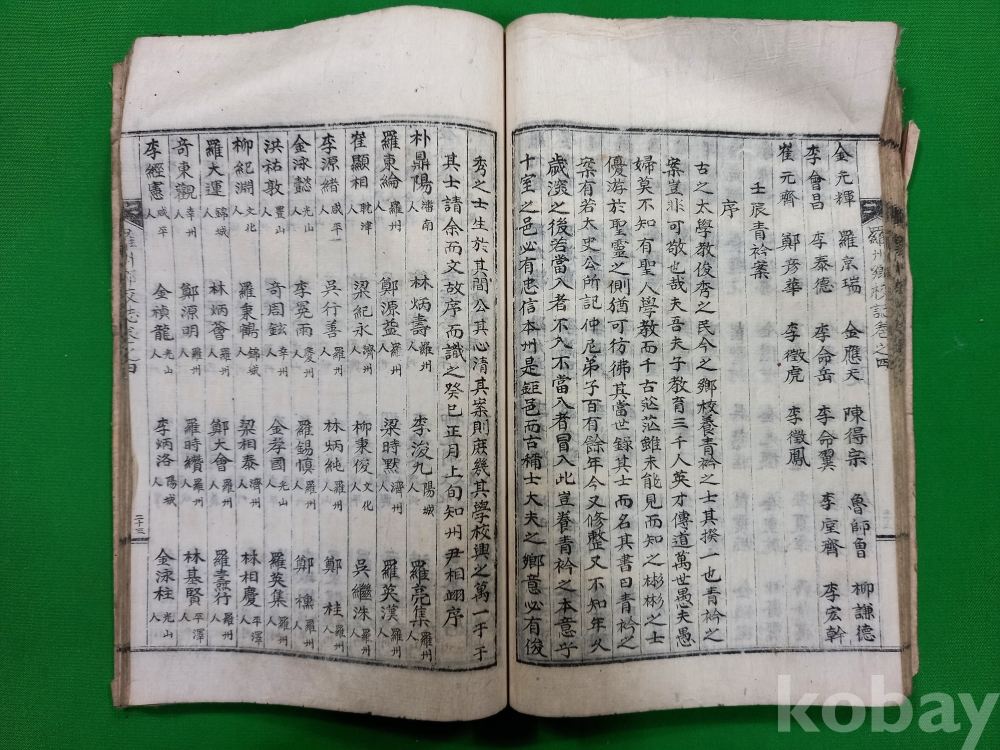 金元輝 羅京瑞 金應天 陳得宗 魯師曾 柳謙德
李會昌 李泰德 李命岳 李命翼 李座齊 李宏幹
崔元齊 鄭彦華 李徵虎 李徵鳳
壬辰青衿案
序
古之太學教俊秀之民今之鄉校養青衿之士其揆一也青衿之
案豈非可敬也哉夫吾夫子教育三千人英才傳道萬世愚夫愚
婦莫不知有聖人學教而千古茫茫雖未能見而知之彬彬之士
優游於聖靈之側猶可彷彿其當世錄其士而名其書曰青衿之
案有若太史公所記仲尼弟子百有餘年今又修整又不知年久
歲深之後若當入者不入不當入者冒入此豈養青衿之本意乎
十室之邑必有忠信本州是鉅邑而古稱士大夫之鄉意必有俊
羅州鄉校誌卷之四
秀之士生於其間公其心清其案則庶幾其學校興之萬一于于
其士請余而文故序而識之癸巳正月上旬知州尹相翊序
朴鼎陽 潘南人 林炳壽 羅州人 李浚九 陽城人 羅亮集 羅州人
羅東綸 羅州人 鄭源益 羅州人 梁時默 濟州人 羅英漢 羅州人
崔顯相 乾津人 梁紀永 濟州人 柳東俊 文化人 吳繼洙 羅州人
李源緒 咸平人 吳行善 羅州人 林炳純 羅州人 鄭桂 羅州人
金泳懿 光山人 李冕雨 慶州人 羅錫慎 羅州人 鄭櫄 羅州人
洪祐敦 豊山人 奇周鉉 幸州人 金孝國 光山人 羅英集 羅州人
柳紀淵 文化人 羅東鶴 錦城人 梁相泰 濟州人 林相慶 平澤人
羅大運 錦城人 林炳薈 羅州人 鄭大會 羅州人 羅燾行 羅州人
奇東觀 幸州人 鄭源明 羅州人 羅時纘 羅州人 林基賢 平澤人
李經憲 咸平人 金禎龍 光山人 李炳洛 陽城人 金泳柱 光山人
羅州鄉校誌卷之四 二十三
kobay